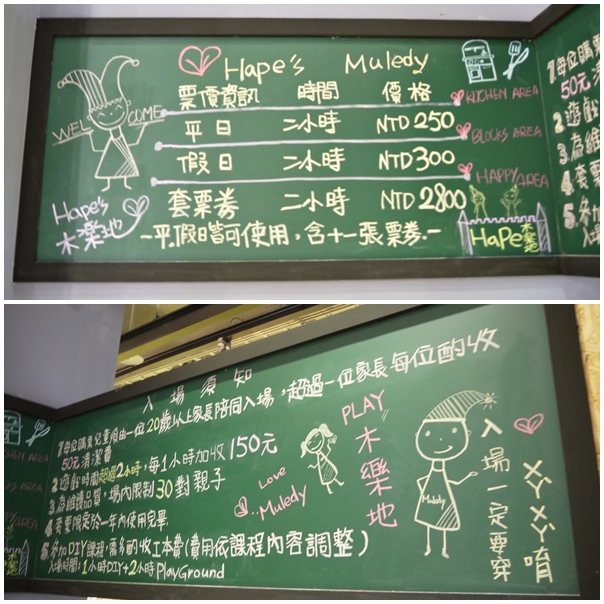 Hape's Muledy
票價資訊 時間 價格
平日 二小時 NTD 250
假日 二小時 NTD 300
套票券 二小時 NTD 2800
-平.假日皆可使用，含十一張票券.-
WELCOME
Hape's
木樂地
KITCHEN AREA
BLOCKS AREA
HAPPY AREA
HaPe木樂地
1每位購
50元清
2遊戲
3為維
4套票
5參加
入場
入場須知
1每位購票兒童須由一位20歲以上家長陪同入場，超過一位家長每位酌收
50元清潔費
2遊戲時間超過2小時，每1小時加收150元
3為維護品質，場內限制30對親子
4套票限定於一年內使用完畢.
5參加DIY課程，需另酌收工本費(費用依課程內容調整)
入場時間：1小時DIY+2小時PlayGround
Love
Muledy
PLAY
木樂地
Muledy
入場一定要穿
ㄨㄚˊㄨㄚˊ唷
KITCHEN AREA
AREA
AREA